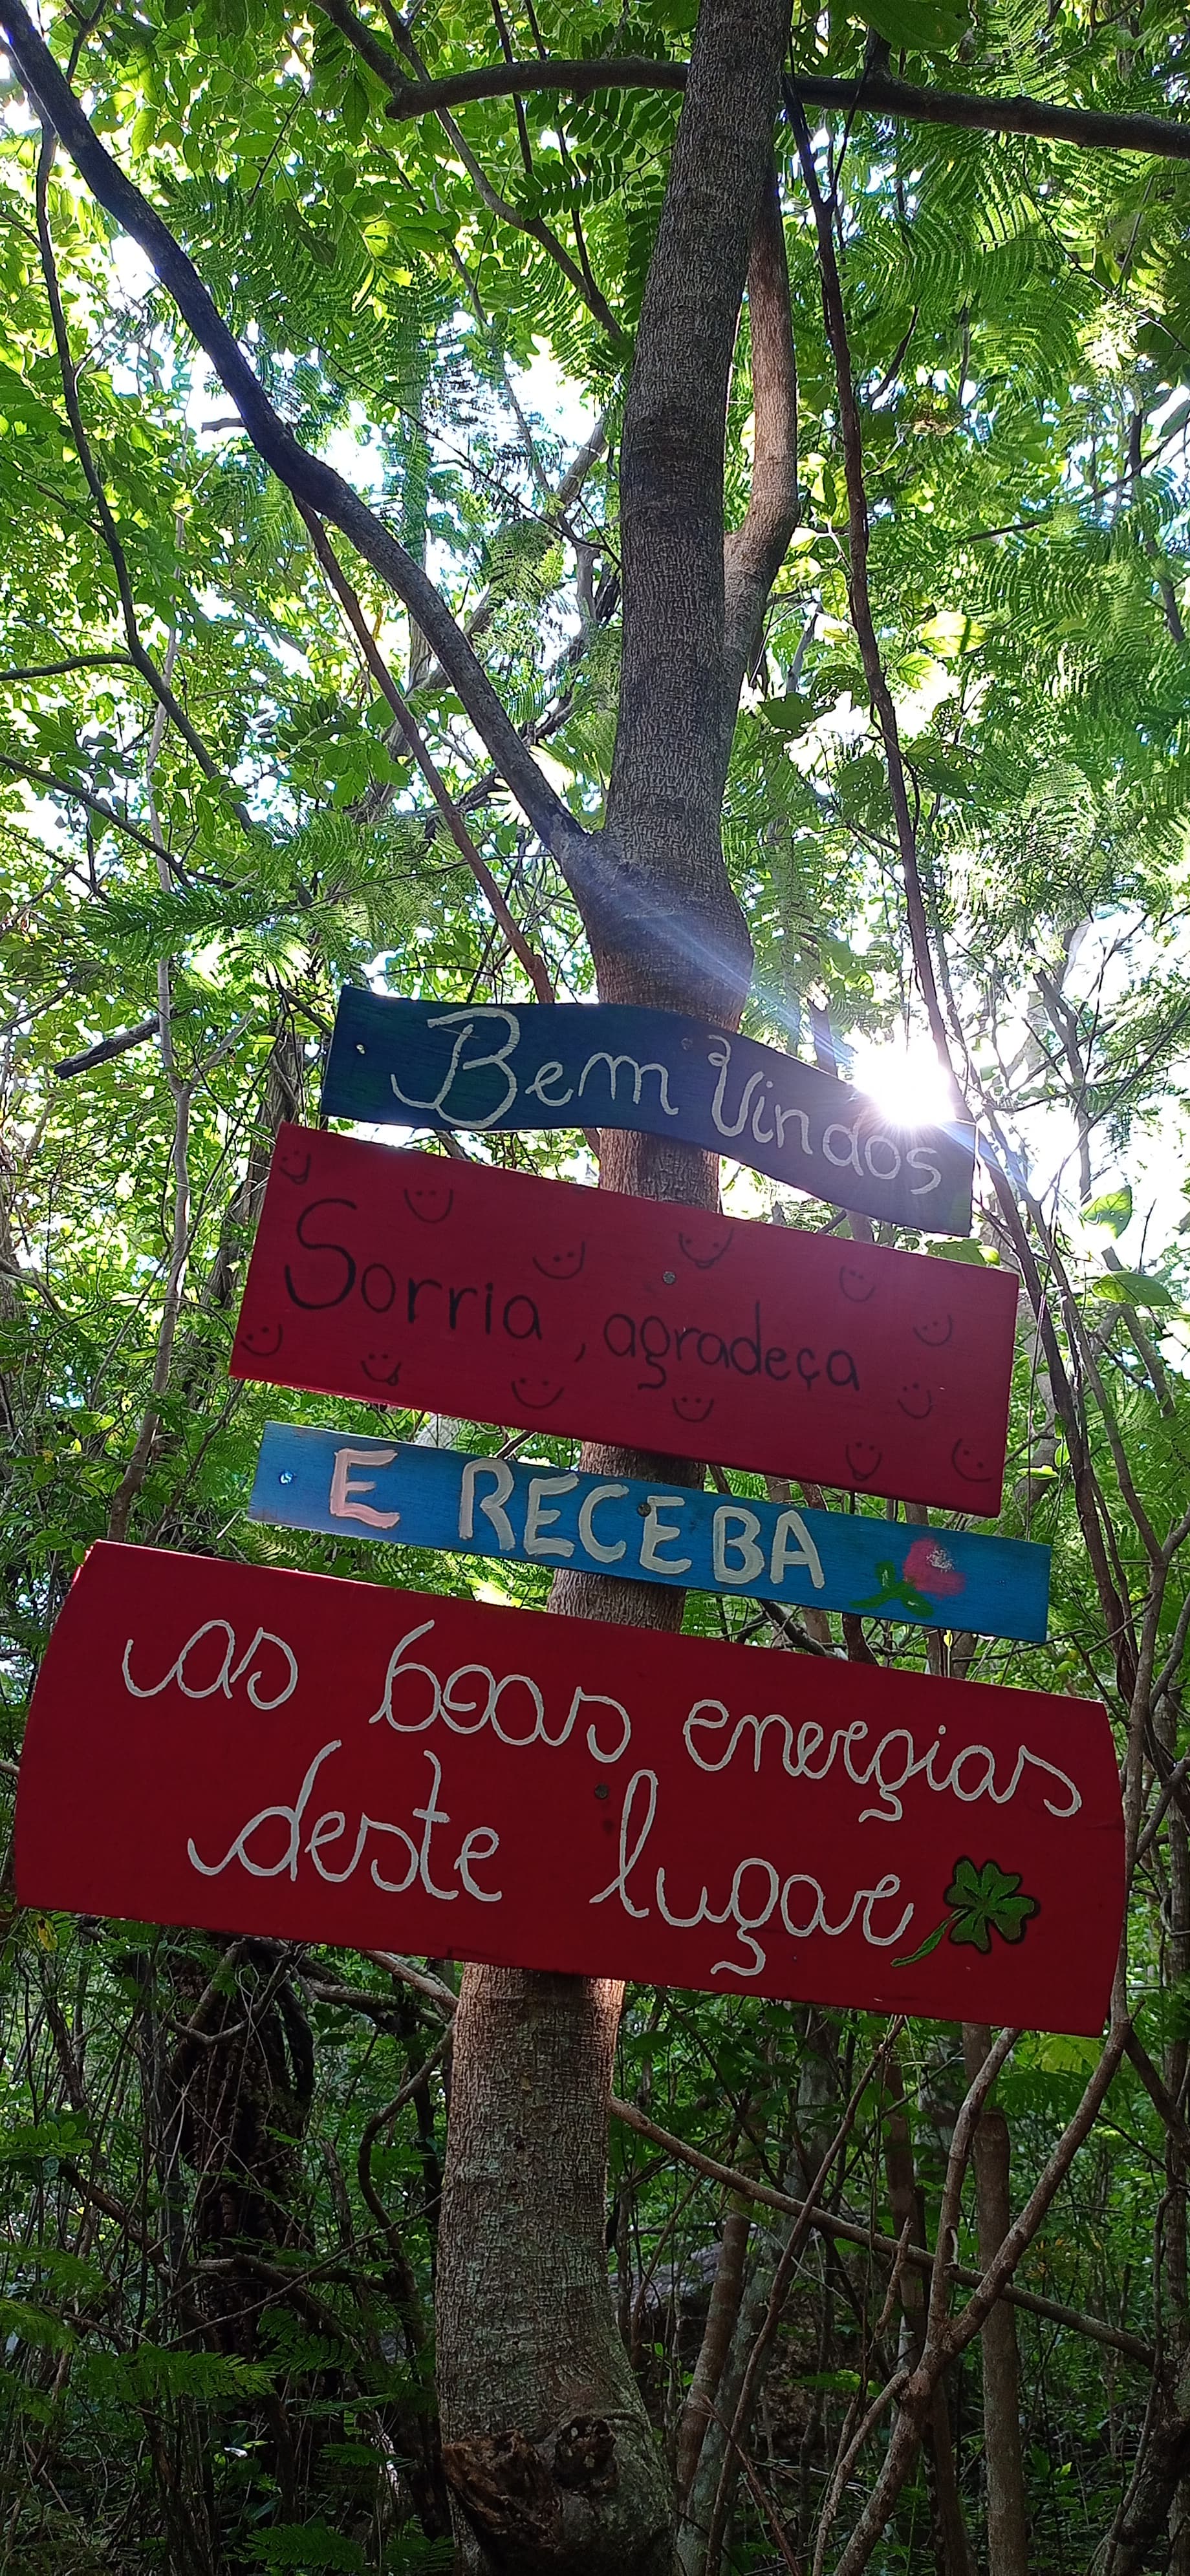 Bem Vindos
Sorria, agradeça
E RECEBA
as boas energias
deste lugar